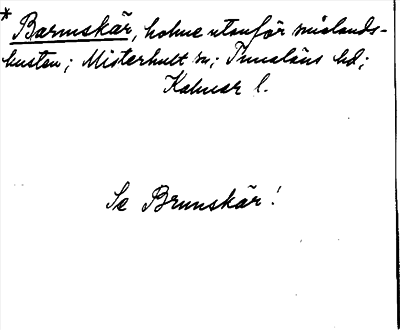 * Barnskär, holme utanför smålands-
kusten; Misterhult sn; Tunaläns hd;
Kalmar l.
Se Brunskär!